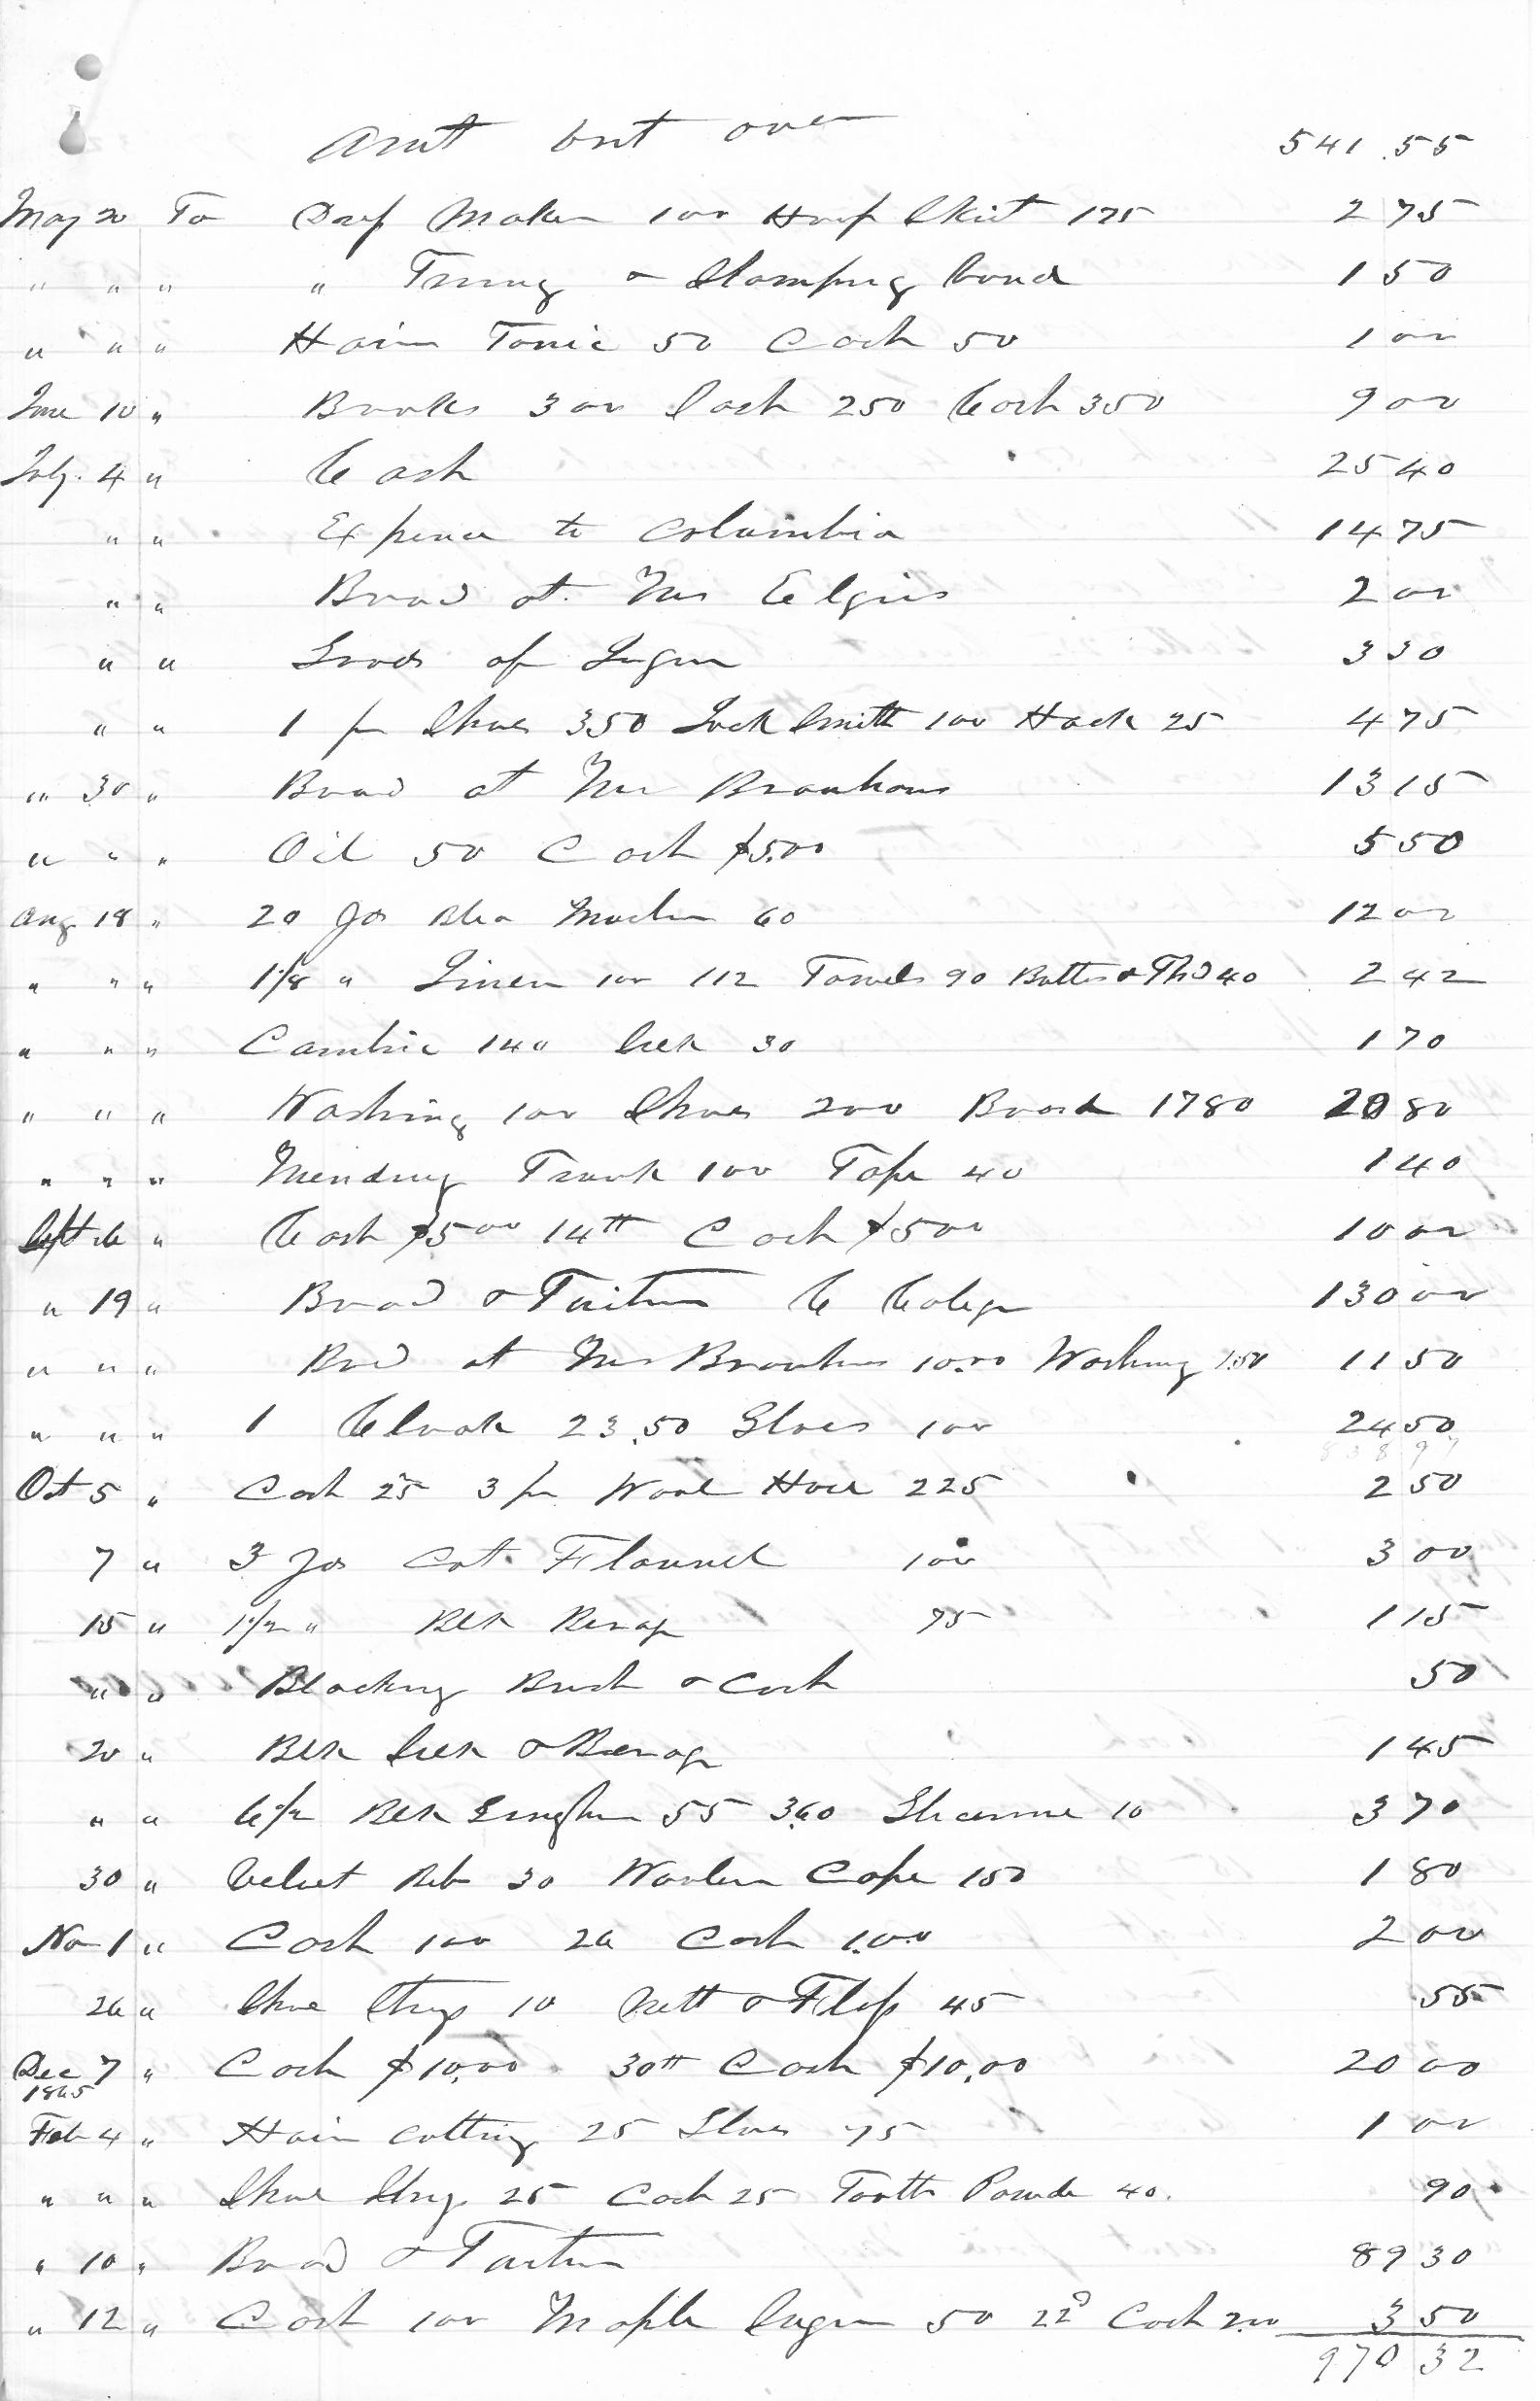 Amt brt over 541.55
May 20 To Drss Maker 100 Hoop Skirt 175 2 75
" " " " Triming & Stamping band 1 50
" " " Hair Tonic 50 Cash 50 1 00
June 10 " Books 300 Cash 250 Cash 350 9 00
July 4 " Cash 25 40
" " Expence to Columbia 14 75
" " Board at Mrs Elgins 2 00
" " Goods of 3 30
" " 1 pr Shoes 350 Lock Smith 100 Hack 25 4 75
" 30 " Board at Mrs Branhams 13 15
" " " Oil 50 Cash $5.00 5 50
Aug 18 " 20 yds Blea Muslin 60 12 00
" " " 1 1/8 " Linen 100 112 Towels 90 Buttos & Thd 40 2 42
" " " Cambric 140 Silk 30 1 70
" " " Washing 100 Shoes 200 Board 1780 20 80
" " " Mending Trunk 100 Tape 40 1 40
Sept 6 " Cash $500 14th Cash $500 10 00
" 19 " Board & Tuition C Colege 130 00
" " " Bord at Mrs Branhms 10.00 Washing 1.50 11 50
" " " 1 Cloak 23.50 Gloves 100 24 50
838 97
Oct 5 " Cash 25 3 pr Wool Hose 225 2 50
7 " 3 yds Cot. Flannel 100 3 00
15 " 1 1/2 " Blk Berage 75 1 15
" " Blacking Brush & Cash 50
20 " Blk Silk & Berage 1 45
" " 6 1/2 Blk Gingham 55 3.60 10 3 70
30 " Velvet Rib 30 Woolen Cape 150 1 80
Nov 1 " Cash 100 26 Cash 1.00 2 00
26 " Shoe Strgs 10 Nett & 45 55
Dec 7 " Cash $10.00 30th Cash $10.00 20 00
1865
Feb 4 " Hair cutting 25 Gloves 75 1 00
" " " Shoe Strgs 25 Cash 25 Tooth Powder 40. 90
" 10 " Board & Tuition 89 30
" 12 " Cash 100 Maple Sugar 50 22d Cash 2.00 3 50
970 32